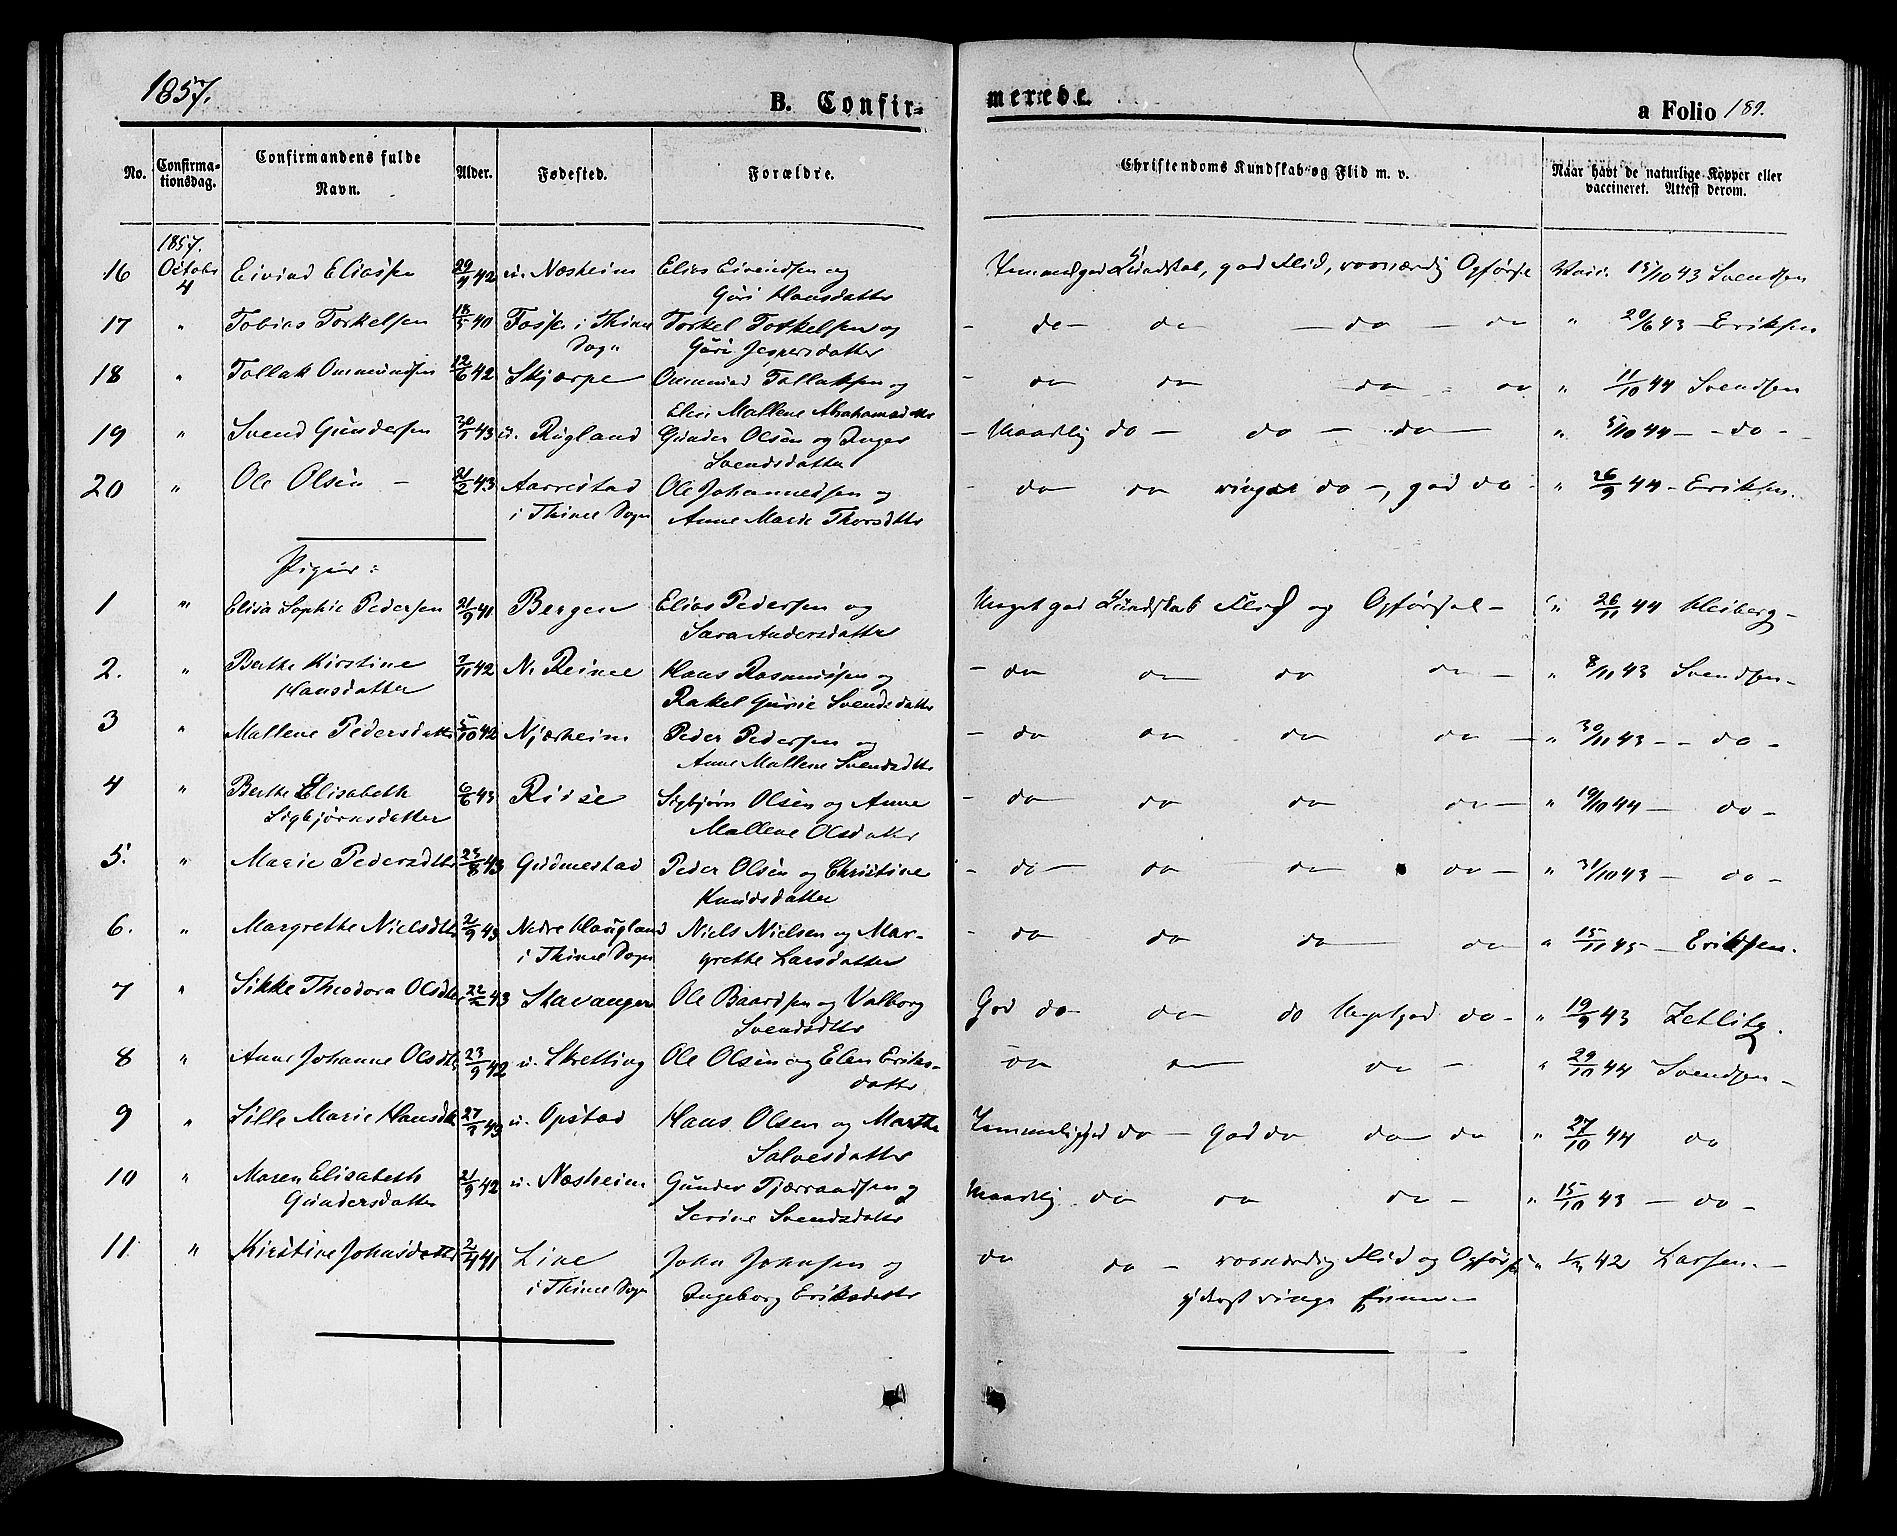 1857.
B. Confir-
merede.
a Folio 189.
No.
Confirma-
tionsdag.
Confirmandens fulde
Navn.
Alder.
Fødested.
Forældre.
Christendoms Kundskab og Flid m. v.
Naar havt de naturlige Kopper eller
vaccineret. Attest derom.
1857.
16 Octobr Eivind Eliassen 29/9 42 u. Næsheim Elias Eivindsen og Kundskab, god Flid, rosværdig Opførsel Vacc. 15/10 43 Svendsen
4 Guri Hansdatter
17 " Tobias Torkelsen 18/5 40 Fosse i Thime Torkel Torkelsen og - do - do - do - do " 29/6 43 - Eriksen
Sogn Guri Jespersdatter
18 " Tollak Ommundsen 12/6 42 Skjærpe Ommund Tollaksen og - do do do - do " 11/10 44 Svendsen
Elen Mallene Abrahamsdtr
19 " Svend Gundersen 30/1 43 u. Rugland Gunder Olsen og Inger - Maadlig do - do - do - " 5/10 44 - - do -
Svendsdatter
20 " Ole Olsen - 21/2 43 Aarrestad Ole Johannessen og - do do ringe do -, god do - " 26/9 44 - Eriksen.
i Thime Sogn Anne Marie Thorsdtr
Piger:
1 " Elisa Sophie Pedersen 21/9 41 Bergen Elias Pedersen og Meget god Kundskab Flid og Opførsel - " 26/11 44 Heiberg -
Sara Andersdatter
2. " Berthe Kirstine 7/11 42 N. Reime Hans Rasmussen og - do do do do - " 8/11 43 Svendsen -
Hansdatter Rakel Gurie Svendsdatter
3 " Mallene Pedersdatter 5/10 42 Njærheim Peder Pedersen og - do do do do - " 30/11 43 - - do -
Anne Mallene Svendsdtr
4 " Berthe Elisabeth 6/6 43 Sigbjørn Olsen og Anne - do do do do - " 19/10 44 - do -
Sigbjørnsdatter Mallene Olsdatter
5. " Marie Pedersdtr 23/8 43 Gudmestad Peder Olsen og Christine - do - do do do - " 31/10 43 - do -
Knudsdatter
6. " Margrethe Nielsdtr 2/9 43 Nedre Haugland Niels Nielsen og Mar- - do do do do " 15/11 45 - Eriksen.
i Thime Sogn grethe Larsdatter
7 " Sikke Theodora Olsdtr 22/2 43 Stavanger Ole Baardsen og Valborg God do do do Meget god do - " 19/9 43 Zetlitz.
Svendsdtr
8 " Anne Johanne Olsdtr 23/9 42 u. Skretting Ole Olsen og Elen Eriks- do do do - " 29/10 44 Svendsen -
datter
9 " Sille Marie Hansdtr 43 u. Opstad Hans Olsen og Marthe do - god do do do " 27/10 44 do
Salvesdatter
10 " Maren Elisabeth 21/9 42 u. Næsheim Gunder Tjærrandsen og Maadlig do do do - " 15/10 43 - do -
Gundersdatter Serine Svendsdatter
11. " Kirstine Johnsdatter 2/4 41 Line John Johnsen og do do - rosværdig Flid og Opførsel " 42 Larsen. -
i Thime Sogn Ingeborg Eriksdatter yderst ringe